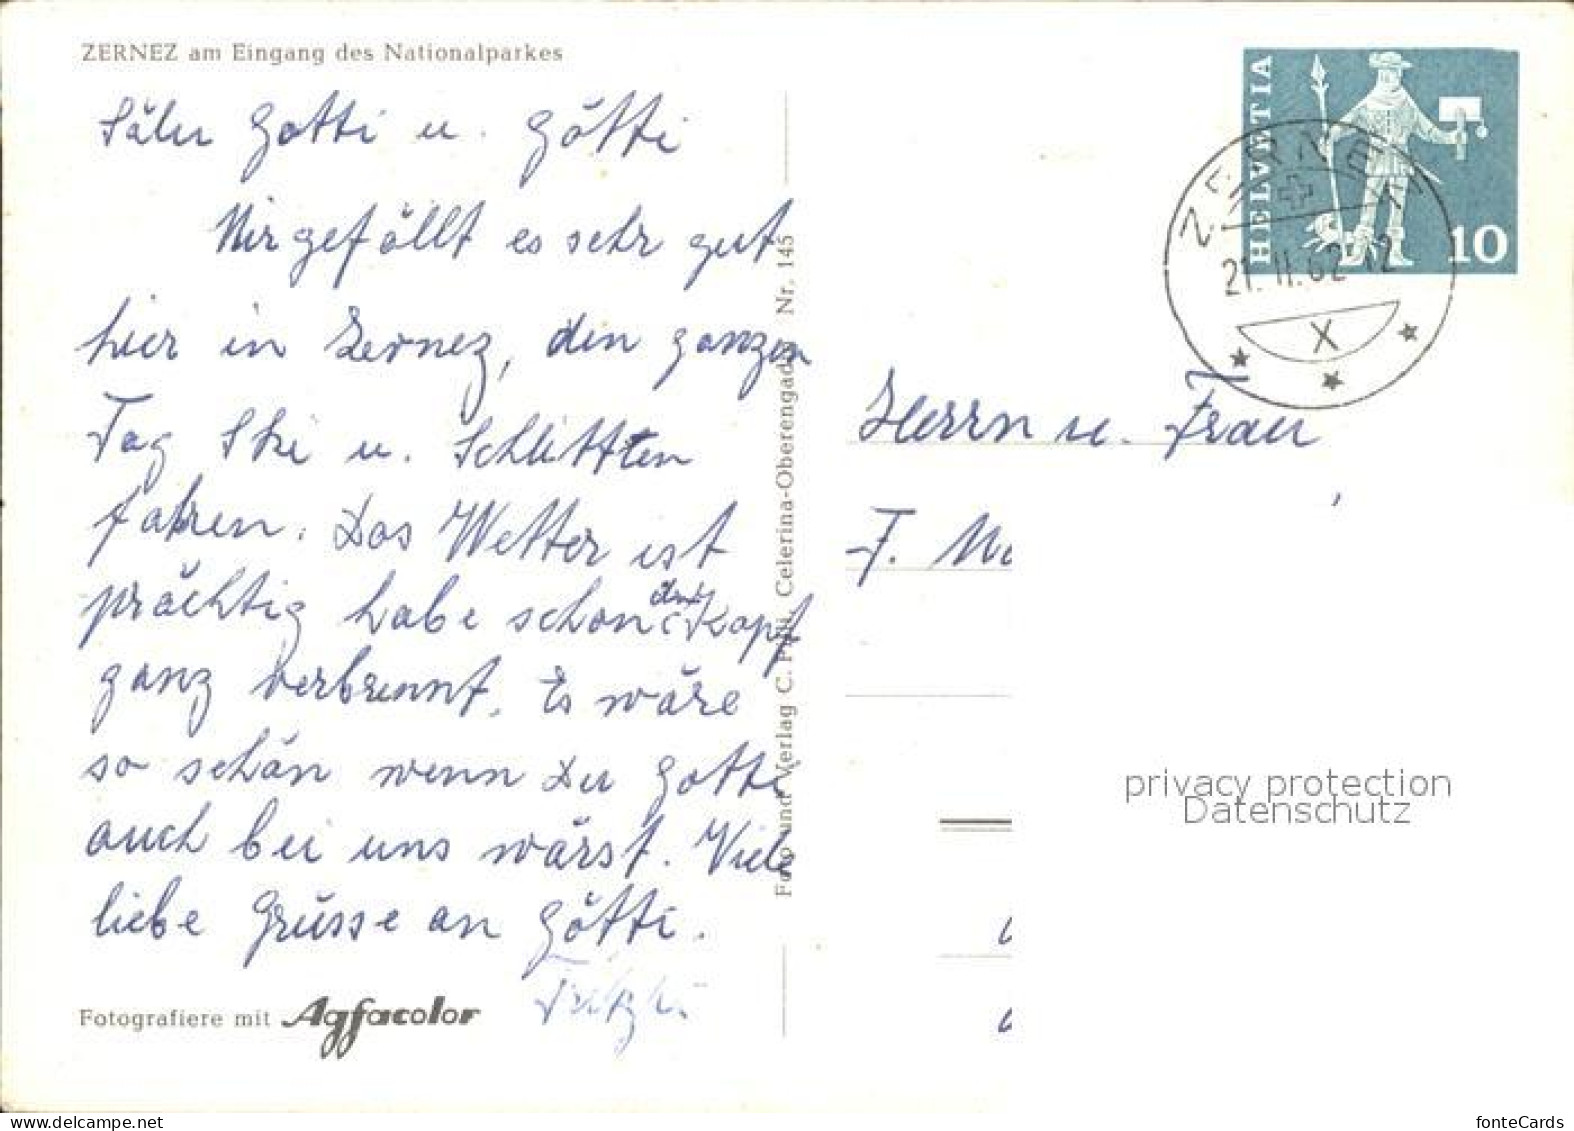 ZERNEZ am Eingang des Nationalparkes
Säler Gotti u. Götti
Mir gefällt es sehr gut
hier in Zernez, den ganzen
Tag Ski u. Schlittten
fahren. Das Wetter ist
prächtig habe schon den Kopf
ganz verbrennt. Es wäre
so schön wenn Du Gotti
auch bei uns wärst. Viele
liebe Grüsse an Götti.
Fotografiere mit Agfacolor
Foto und Verlag C. Celerina-Oberengadin Nr. 145
HELVETIA
10
ZERNEZ
21. II. 62 - 12
X
Herrn u. Frau
F.
privacy protection
Datenschutz
www.delcampe.net
fonteCards